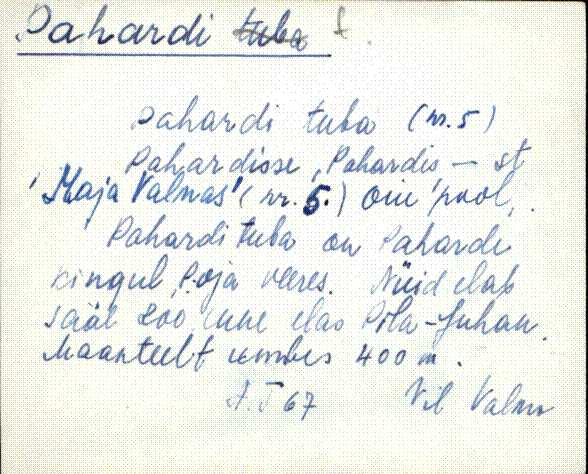 Pahardi tuba t.
Pahardi tuba (nr. 5)
Pahardisse, Pahardis, — st
"Maja Valmas" (nr. 5.) Oru pool,
Pahardi tuba on Pahardi
kingul, Poja veeres. Nüid elab
sääl enne elas Pilla-Juhan.
Maanteelt umbes 400 m.
A.T 67 Vil Valmo